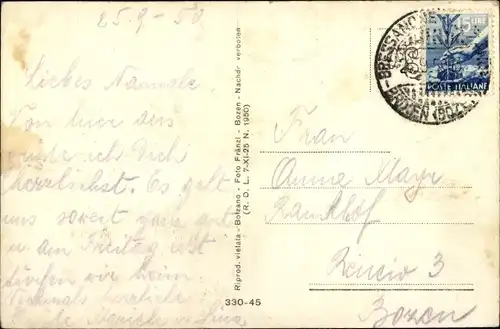 25.9-50
Liebes Nannale.
Von hier aus
grüße ich Dich
herzlichst. Es geht
uns soweit ganz gut
u. am Freitag
dürfen wir heim.
Nochmals herzliche
Riprod. vietata - Bolzano - Foto Fränzl - Bozen - Nachdr. verboten
(R. D. L. 7-XI-25 N. 1950)
330-45
BRESSANONE
BRIXEN (BOLZ
15 LIRE
POSTE ITALIANE
Frau
Anna Mayr
Rencio 3
Bozen